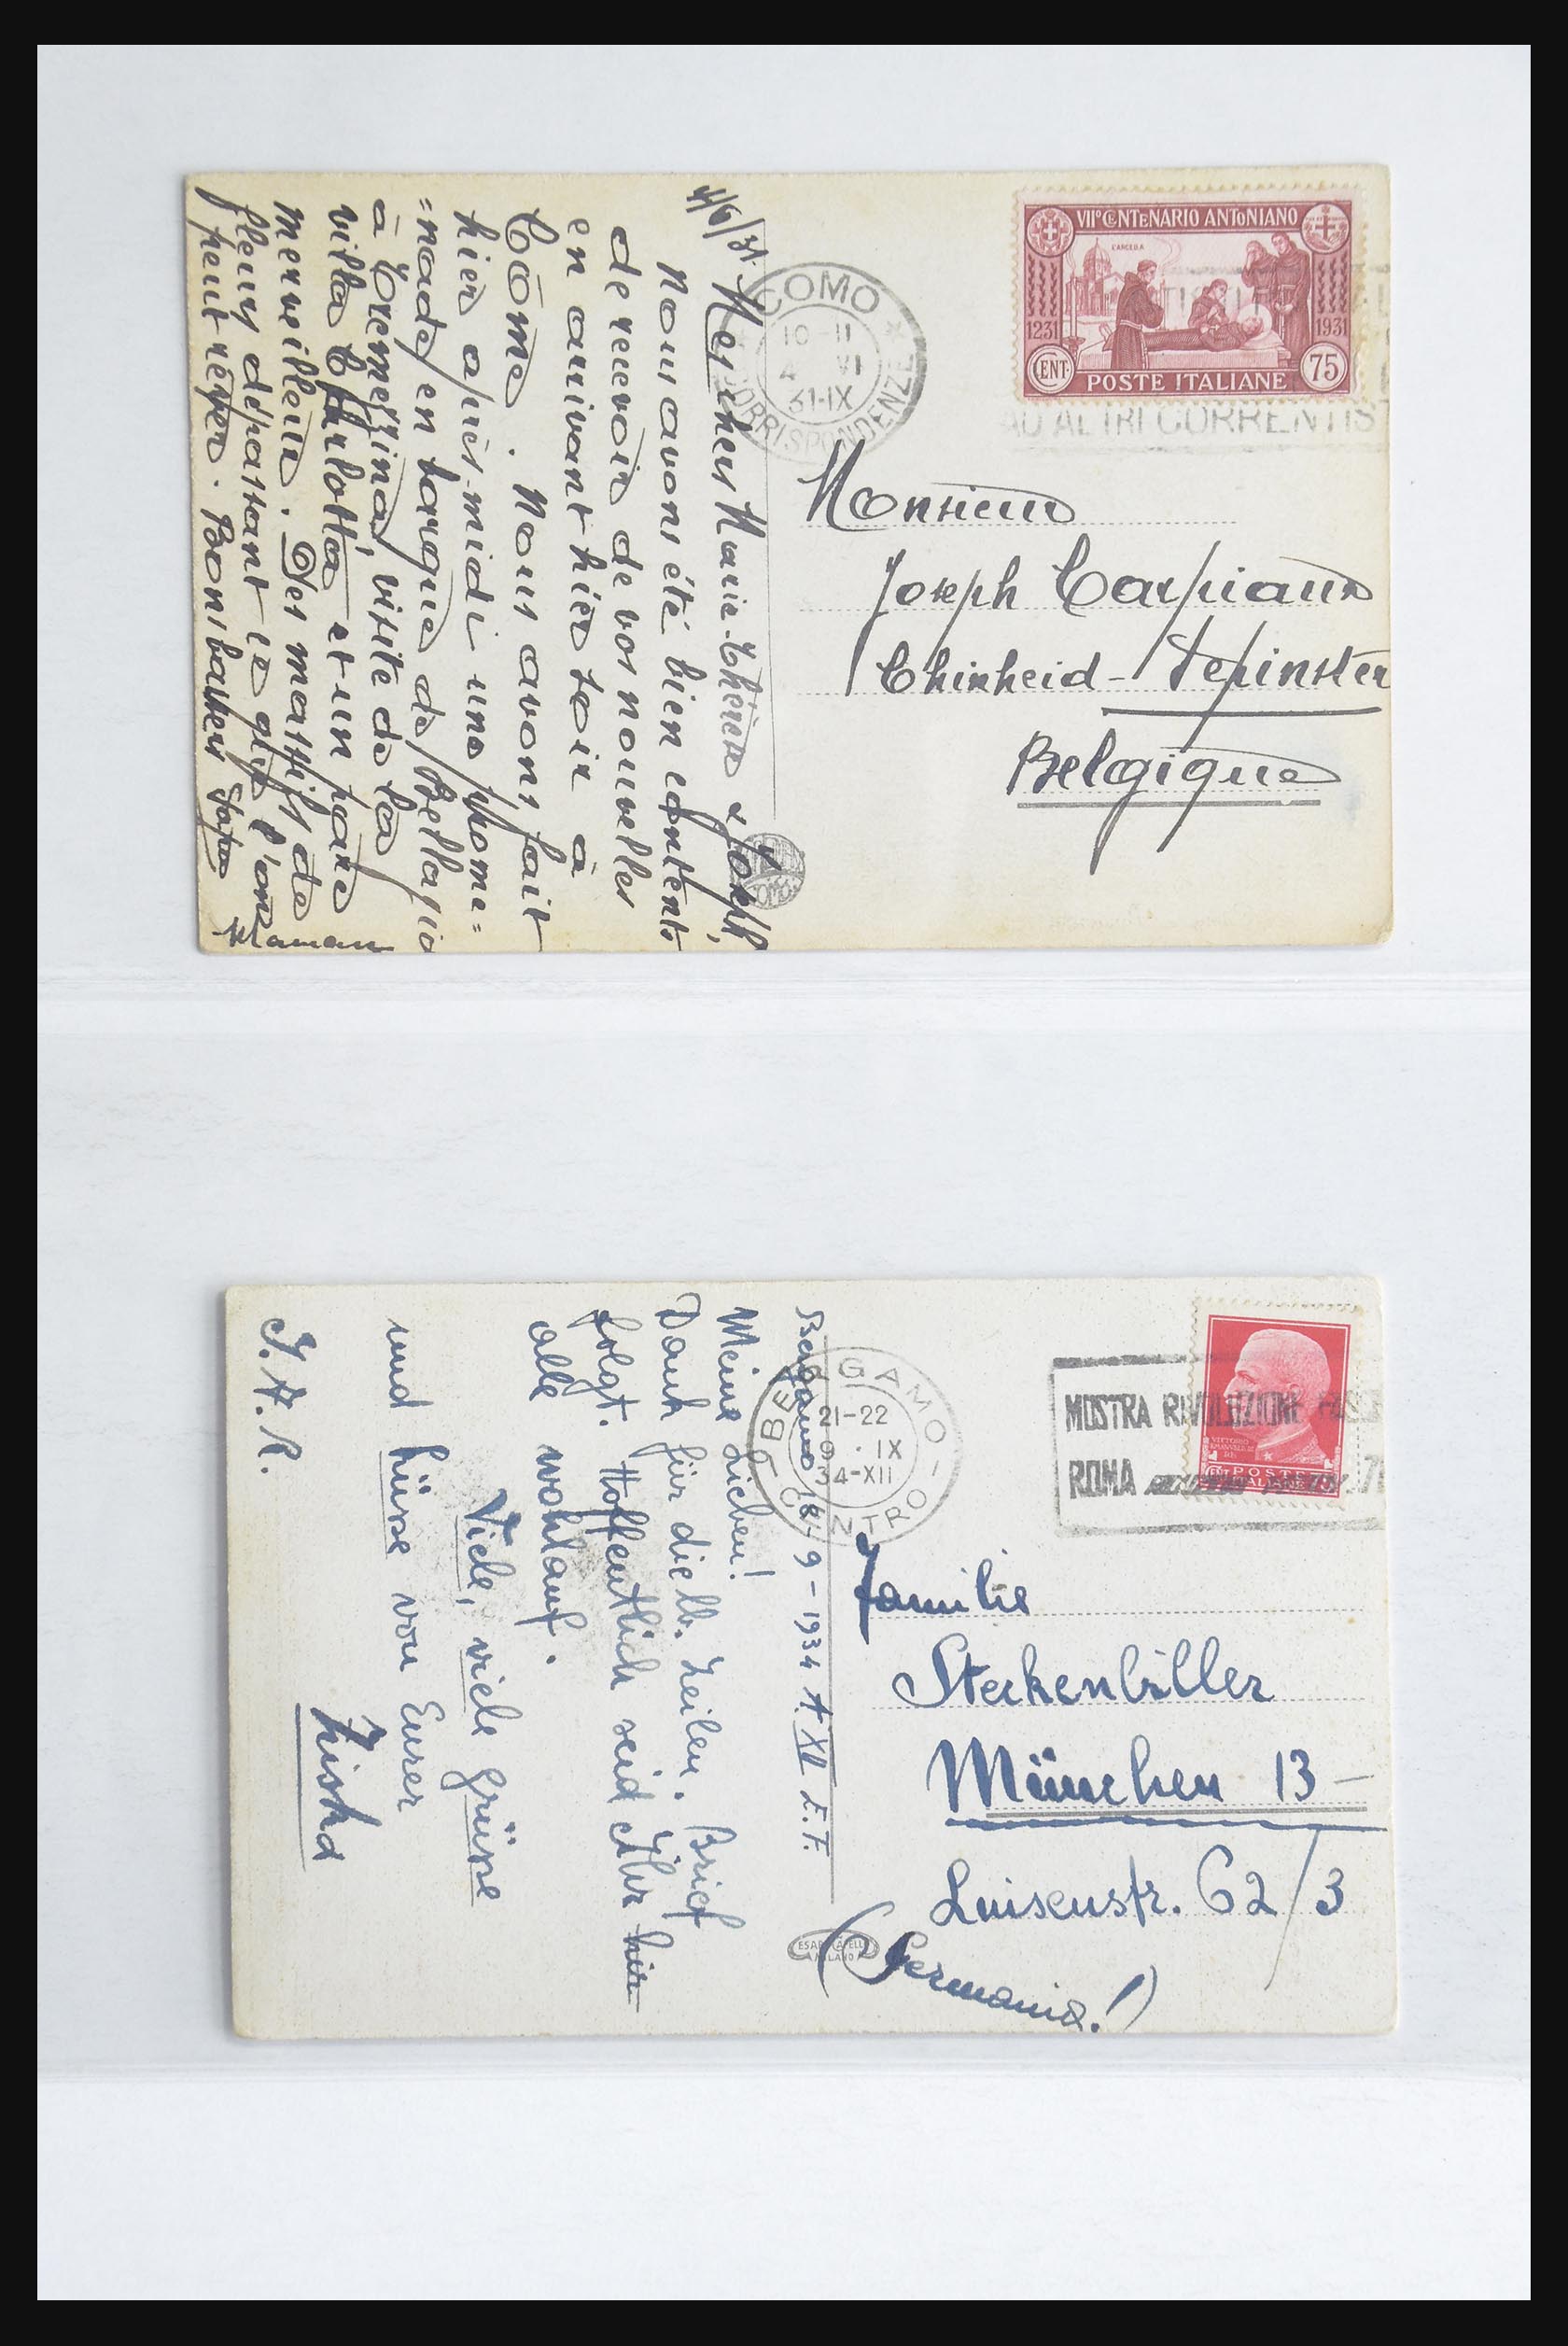 4/6/31.
Mes chers Marie-Thérèse & Joseph,
Nous avons été bien contents
de recevoir de vos nouvelles
en arrivant hier soir à
Côme. Nous avons fait
hier après-midi une prome=
=nade en barque de Bellagio
à Cremezzina, visite de la
villa Charlotta et un parc
merveilleux. Des massifs de
fleurs dépassant ce que l'on
peut rêver. Bons baisers
Maman
COMO
10-11
4 VI
31-IX
CORRISPONDENZE
VII° CENTENARIO ANTONIANO
L'ARCELLA
1231
1931
CENT.
75
POSTE ITALIANE
AD ALTRI CORRENTIS
Monsieur
Joseph Carpiaux
Chinheid-Pepinster
Belgique
Bergamo 18-9-1934 A. XII E.F.
Meine Lieben!
Dank für die lb. Zeilen. Brief
folgt. Hoffentlich seid Ihr hier
alle wohlauf.
Viele, viele Grüsse
und Küsse von Eurer
Zischa
I. A. R.
BERGAMO
CENTRO
21-22
9 . IX
34-XII
MOSTRA RIVOLUZIONE FASC
ROMA
POSTE
Familie
Steckenbiller
München 13-
Luisenstr. 62/3
(Germania!)
MILANO